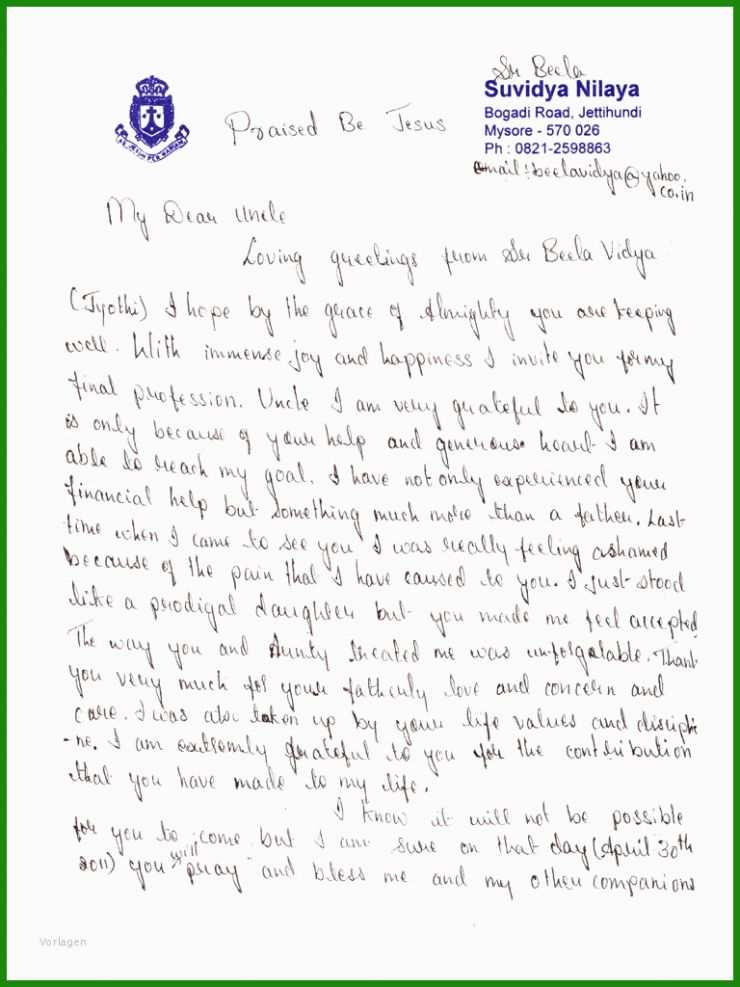 Sr Beela
Suvidya Nilaya
Bogadi Road, Jettihundi
Mysore - 570 026
Ph : 0821-2598863
email: beelavidya@yahoo.
co.in
Praised Be Jesus
My Dear Uncle
Loving greetings from Sr Beela Vidya
(Jyothi) I hope by the grace of Almighty you are keeping
well. With immense joy and happiness I invite you for my
final profession. Uncle I am very grateful to you. It
is only because of your help and generous heart I am
able to reach my goal. I have not only experienced your
financial help but something much more than a father. Last
time when I came to see you I was really feeling ashamed
because of the pain that I have caused to you. I just stood
like a prodigal daughter but you made me feel accepted
The way you and Aunty treated me was unforgatable. Thank
you very much for your fatherly love and concern and
care. I was also taken up by your life values and discipli
-ne. I am extremly grateful to you for the contribution
that you have made to my life.
I know it will not be possible
for you to come but I am sure on that day (April 30th
2011) you will pray and bless me and my other companions
Vorlagen